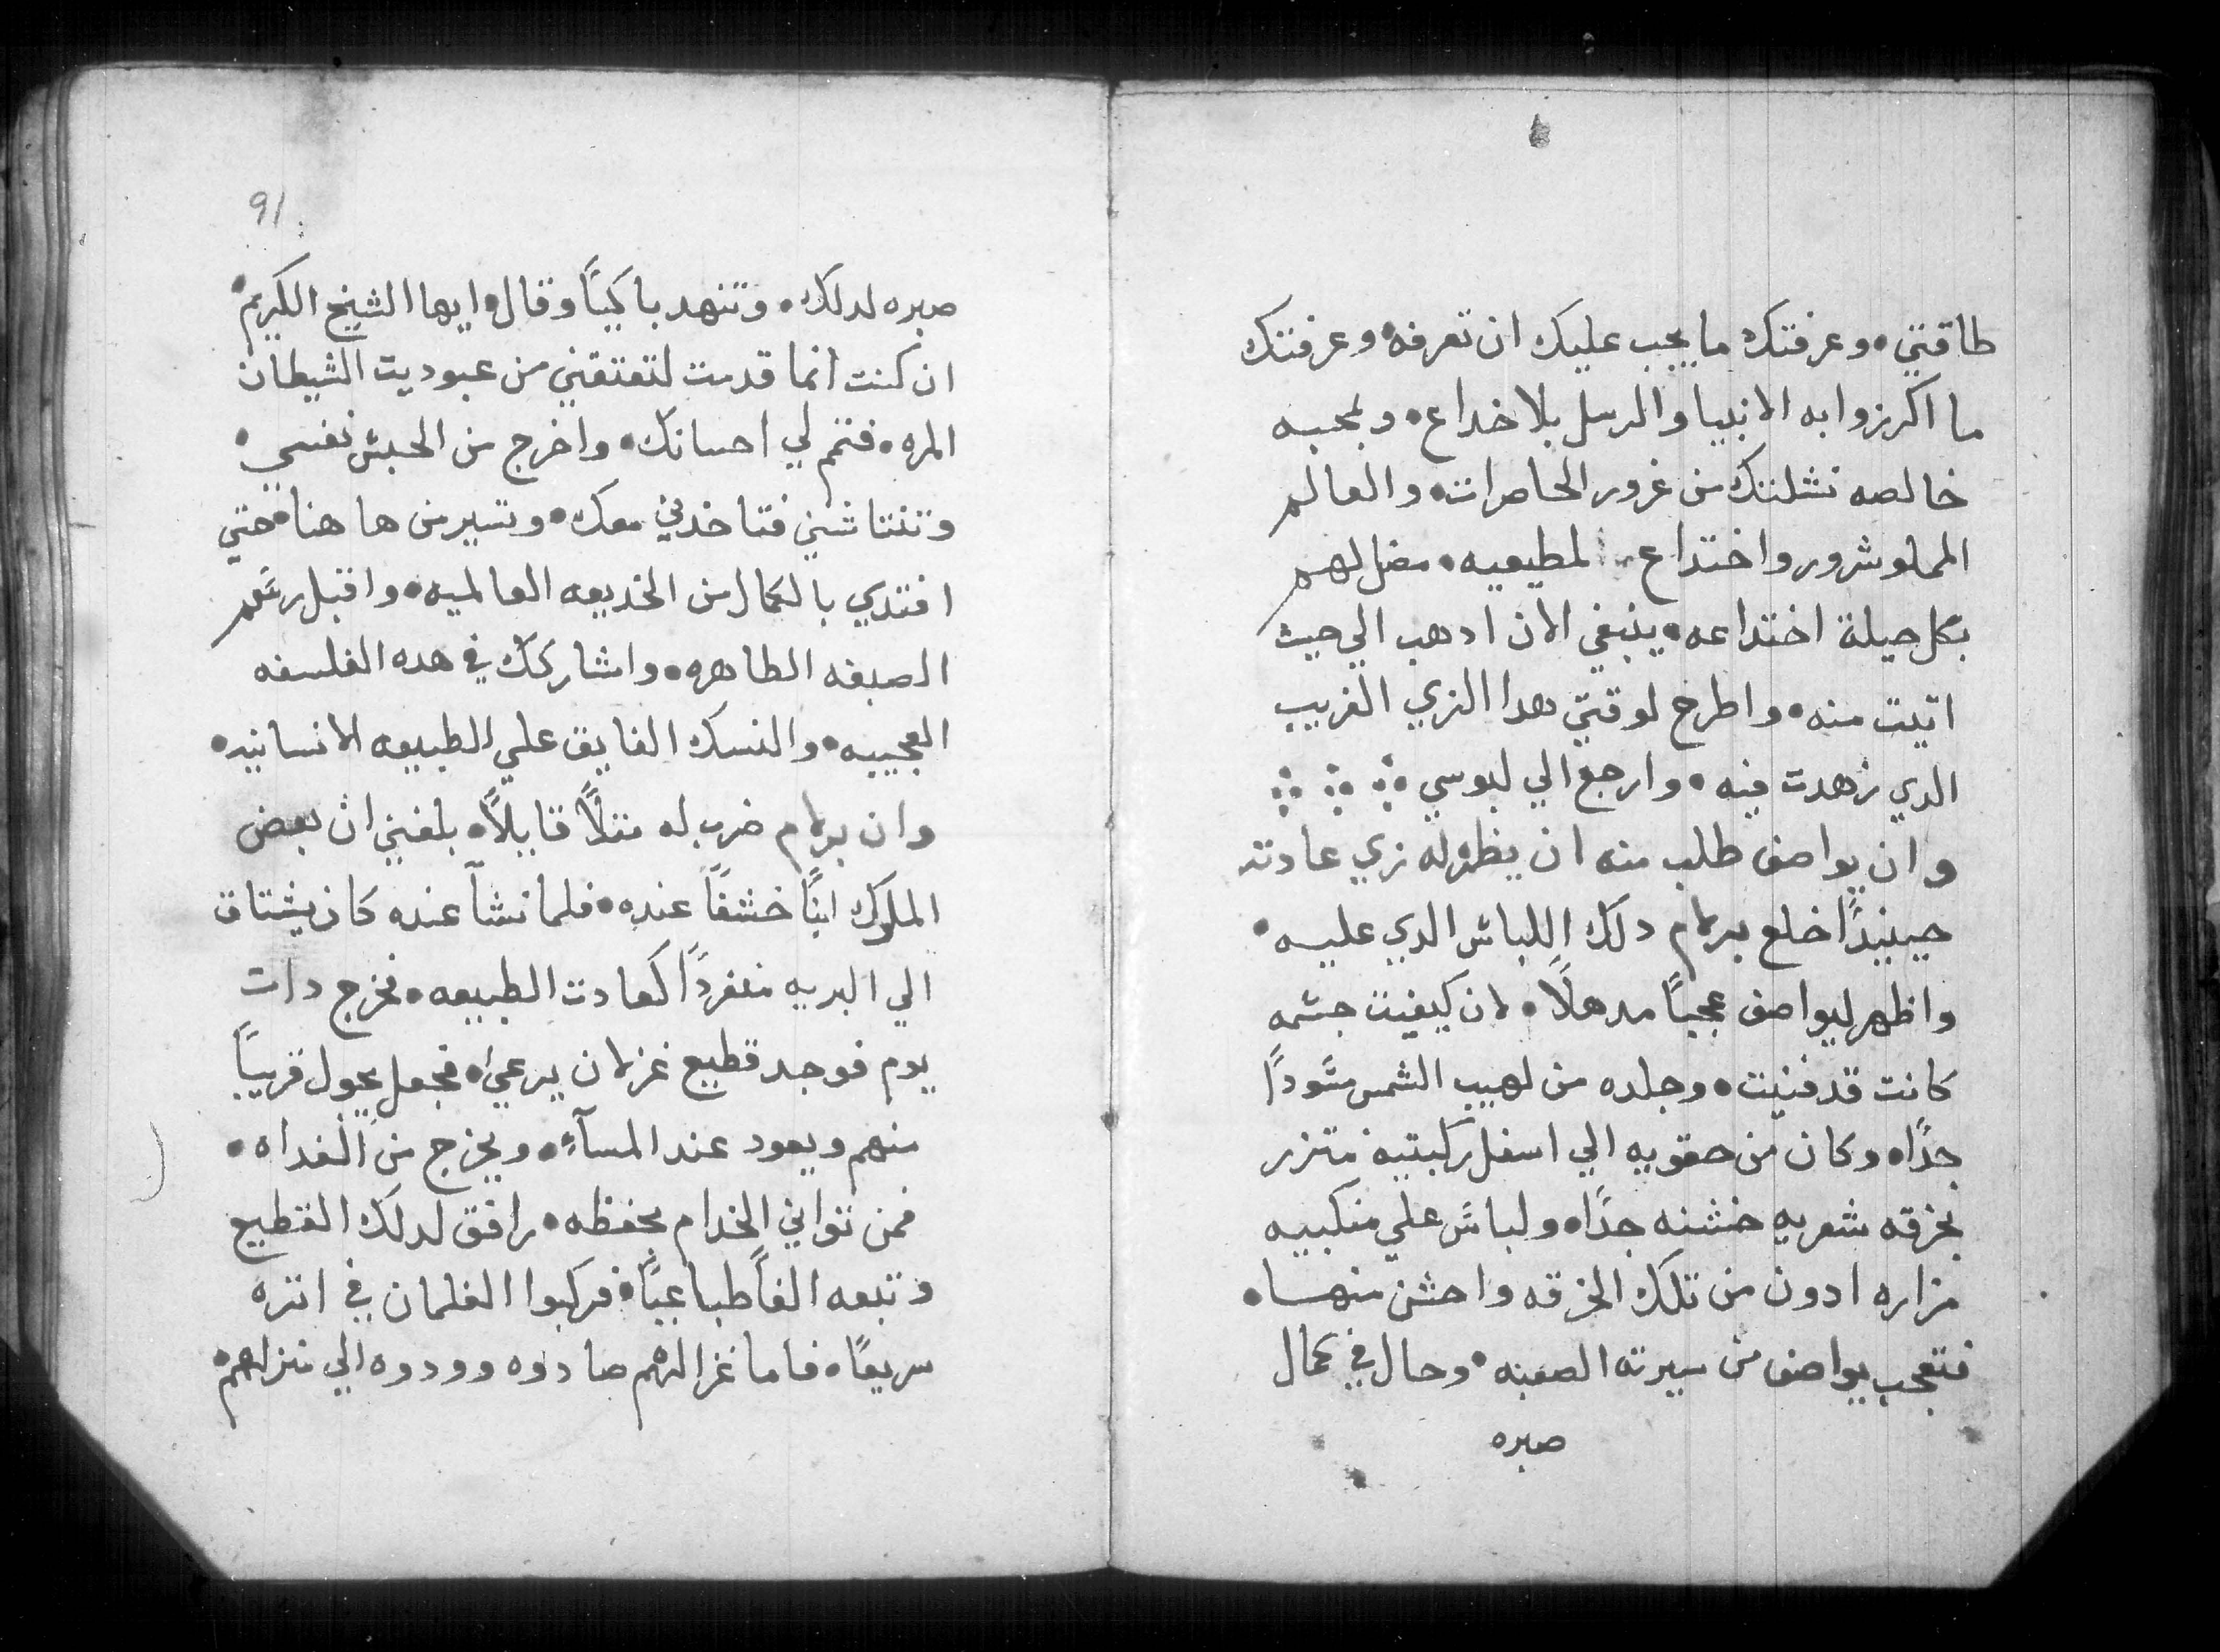 طاقتي • وعرفتك ما يجب عليك ان تعرفه • وعرفتك
ما اكرزوا به الانبيا والرسل بلا خداع • وبمحبه
خالصه نشلتك من غرور الحاضرات • والعالم
المملو شرور واختداع لمطيعيه • مضل لهم
بكل حيلة اختداعه • ينبغي الان ادهب الي حيث
اتيت منه • واطرح لوقتي هدا الزي الغريب
الدي زهدت فيه • وارجع الي لبوسي ∴ ∴ ∴
وان يواصف طلب منه ان يظهر له زي عادته
حينيدًا خلع برلام دلك اللباس الدي عليه •
واظهر ليواصف عجبًا مدهلًا • لان كيفيت جسمه
كانت قد فنيت • وجلده من لهيب الشمس مسودًا
جدًا • وكان من حقويه الي اسفل ركبتيه متزر
بخرقه شعريه خشنه جدًا • ولباس علي منكبيه
مزاره ادون من تلك الخرقه واخشن منها •
فتعجب يواصف من سيرته الصعبه • وحال في كمال
صبره
91
صبره لدلك • وتنهد باكيًا وقال • ايها الشيخ الكريم •
ان كنت انما قدمت لتعتقني من عبوديت الشيطان
المره • فتمم لي احسانك • واخرج من الحبس نفسي •
وتنتاشني فتاخدني معك • ونسير من ها هنا • حتي
افتدي بالكمال من الخديعه العالميه • واقبل رسم
الصبغه الطاهره • واشاركك في هده الفلسفه
العجيبه • والنسك الفايق علي الطبيعه الانسانيه •
وان برلام ضرب له مثلًا قايلًا • بلغني ان بعض
الملوك ابنًا خشفًا عنده • فلما نشآ عنده كان يشتاق
الي البريه منفردًا كعادت الطبيعه • فخرج دات
يوم فوجد قطيع غزلان يرعي • فجعل يجول قريبًا
منهم ويعود عند المسآء • ويخرج من الغداه •
فمن تواني الخدام بحفظه • رافق لدلك القطيع
وتبعه الفًا طباعيًا • فركبوا الغلمان في اتره
سريعًا • فاما غزالهم صادوه وودوه الي منزلهم •